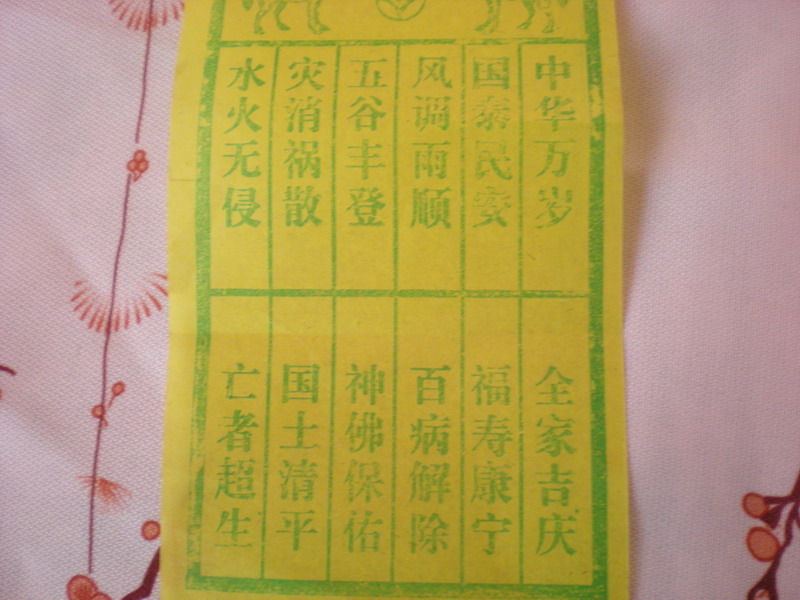 中华万岁
国泰民安
风调雨顺
五谷丰登
灾消祸散
水火无侵
全家吉庆
福寿康宁
百病解除
神佛保佑
国土清平
亡者超生